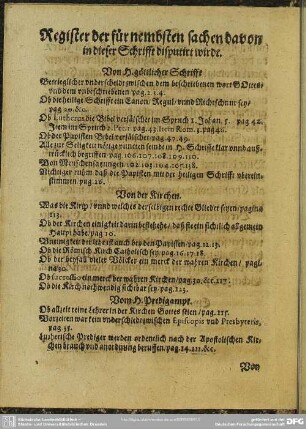 Register der für nembsten sachen davon
in dieser Schrifft disputirt wirdt.
Von H. göttlicher Schrifft
Betrieglicher vnderscheidt zwischen dem beschriebenen wort Gottes
vnd dem vnbeschriebenen pag. 2. 3. 4.
Ob die heilige Schrifft ein Canon/ Regul/ vnnd Rechtschnur sey/
pag 20. &c.
Ob Lutherus die Bibel verfälschet im Spruch 1. Joh an. 5. pag 42.
Item im Spruch 2. Petr. pag. 43. Item Rom. 3. pag 46.
Ob der Papisten Bibel verfälschet pag. 47. 49.
Alle zur Seligkeit nötige puncten seind in H. Schrifft klar vnnd auß-
trücklich begriffen pag. 106. 107. 108. 109. 110.
Von Menschensatzungen 102. 103. 104. 105. 138.
Nichtiger ruhm daß die Papisten mit der heiligen Schrifft vberein-
stimmen. pag. 26.
Von der Kirchen.
Was die Kirch/ vnnd welches derselbigen rechte Glieder seyen/ pagina
113.
Ob der Kirchen einigkeit darinn bestehe/ daß sie ein sichtlich allgemein
Haupt habe/ pag 10.
Vneinigkeit wie sie ist auch bey den Papisten pag. 12. 13.
Ob die Römisch Kirch Catholisch sey pag. 16. 17. 18.
Ob der beyfall vieler Völcker ein merck der wahren Kirchen/ pagi.
19. 20.
Ob successio ein merck der wahren Kirchen/ pag. 30. &c. 117.
Ob die Kirch nothwendig sichtbar sey pag. 115.
Vom H. Predigampt.
Ob allzeit reine Lehrer in der Kirchen Gottes seien/ pag. 115.
Vorzeiten war kein vnderschied zwischen Episcopis vnd Presbyteris,
pag 35.
Lutherische Prediger werden ordenlich nach der Apostolischen Kir-
chen brauch vnd anordnung beruffen. pag. 14. 111. &c.
Von